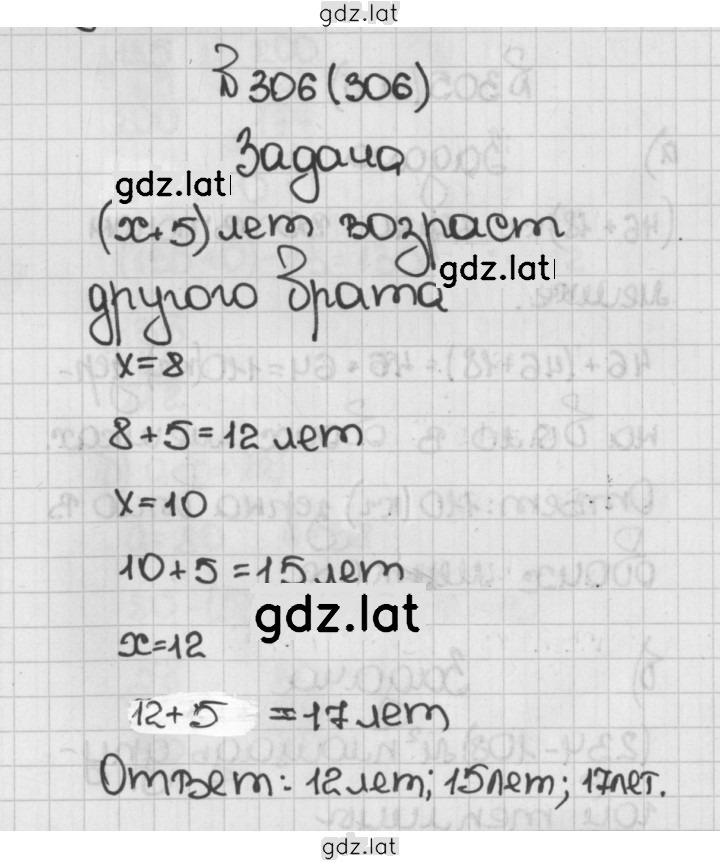 gdz.lat
№ 306 (306)
Задача
gdz.lat
(x+5) лет возраст
gdz.lat
другого брата
x=8
8+5=12 лет
x=10
10+5=15 лет
gdz.lat
x=12
12+5 =17 лет
Ответ: 12 лет; 15 лет; 17 лет.
gdz.lat